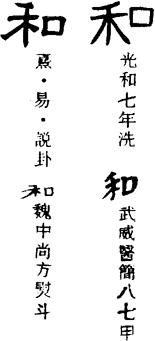 和
光和七年洗
和
武威醫簡八七甲
和
熹·易·説卦
和
魏中尚方熨斗